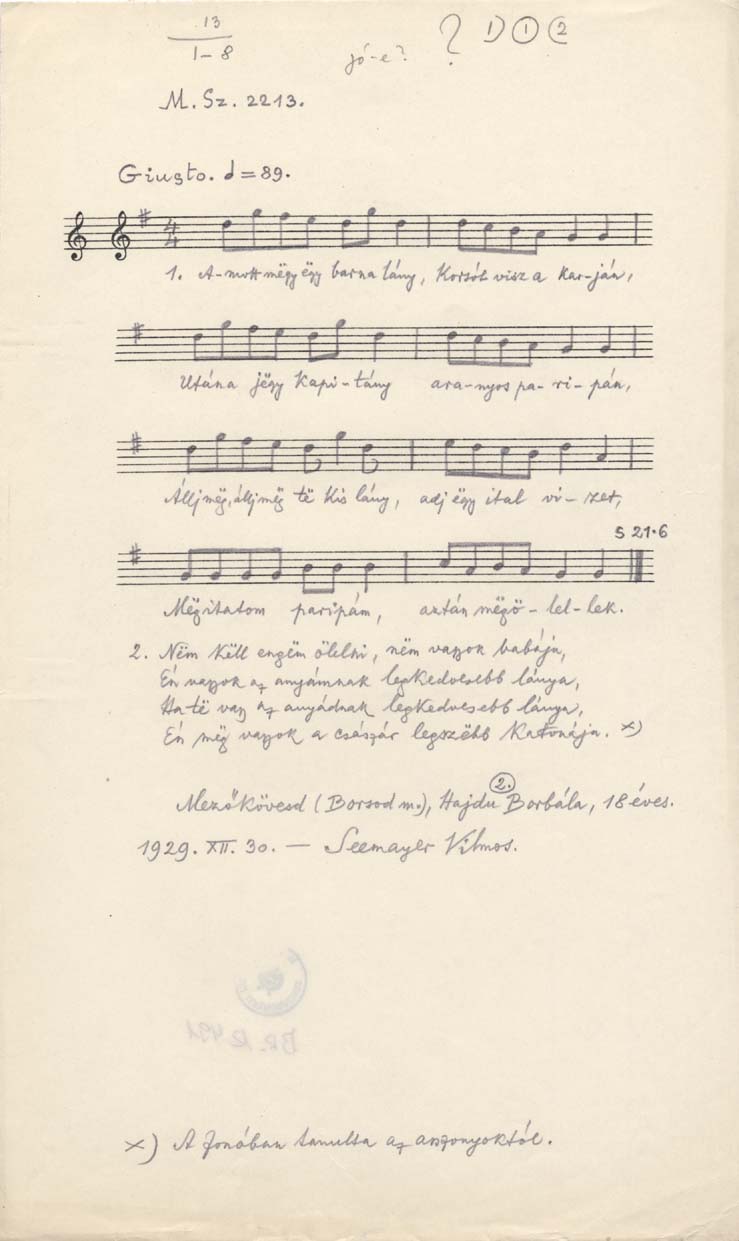 13
1-8
jó-e?
? 1) ① ②
M. Sz. 2213.
Giusto. d = 89.
4
4
1. A-mott mëgy ëgy barna lány, Korsót visz a kar-ján,
Utána jëgy kapi-tány ara-nyos pa-ri-pán,
Állj mëg, állj mëg të kis lány, adj ëgy ital vi-zet,
S 21·6
Mëgitatom paripám, aztán mëgö-lel-lek.
2. Nëm këll engëm ölelni, nëm vagyok babája,
Én vagyok az anyámnak legkedvesebb lánya,
Ha të vagy az anyádnak legkedvesebb lánya,
Én mëg vagyok a császár legszëbb katonája. x)
2.
Mezőkövesd (Borsod m.), Hajdu Borbála, 18 éves.
1929. XII. 30. — Seemayer Vilmos.
BR. 12491
x) A fonóban tanulta az asszonyoktól.